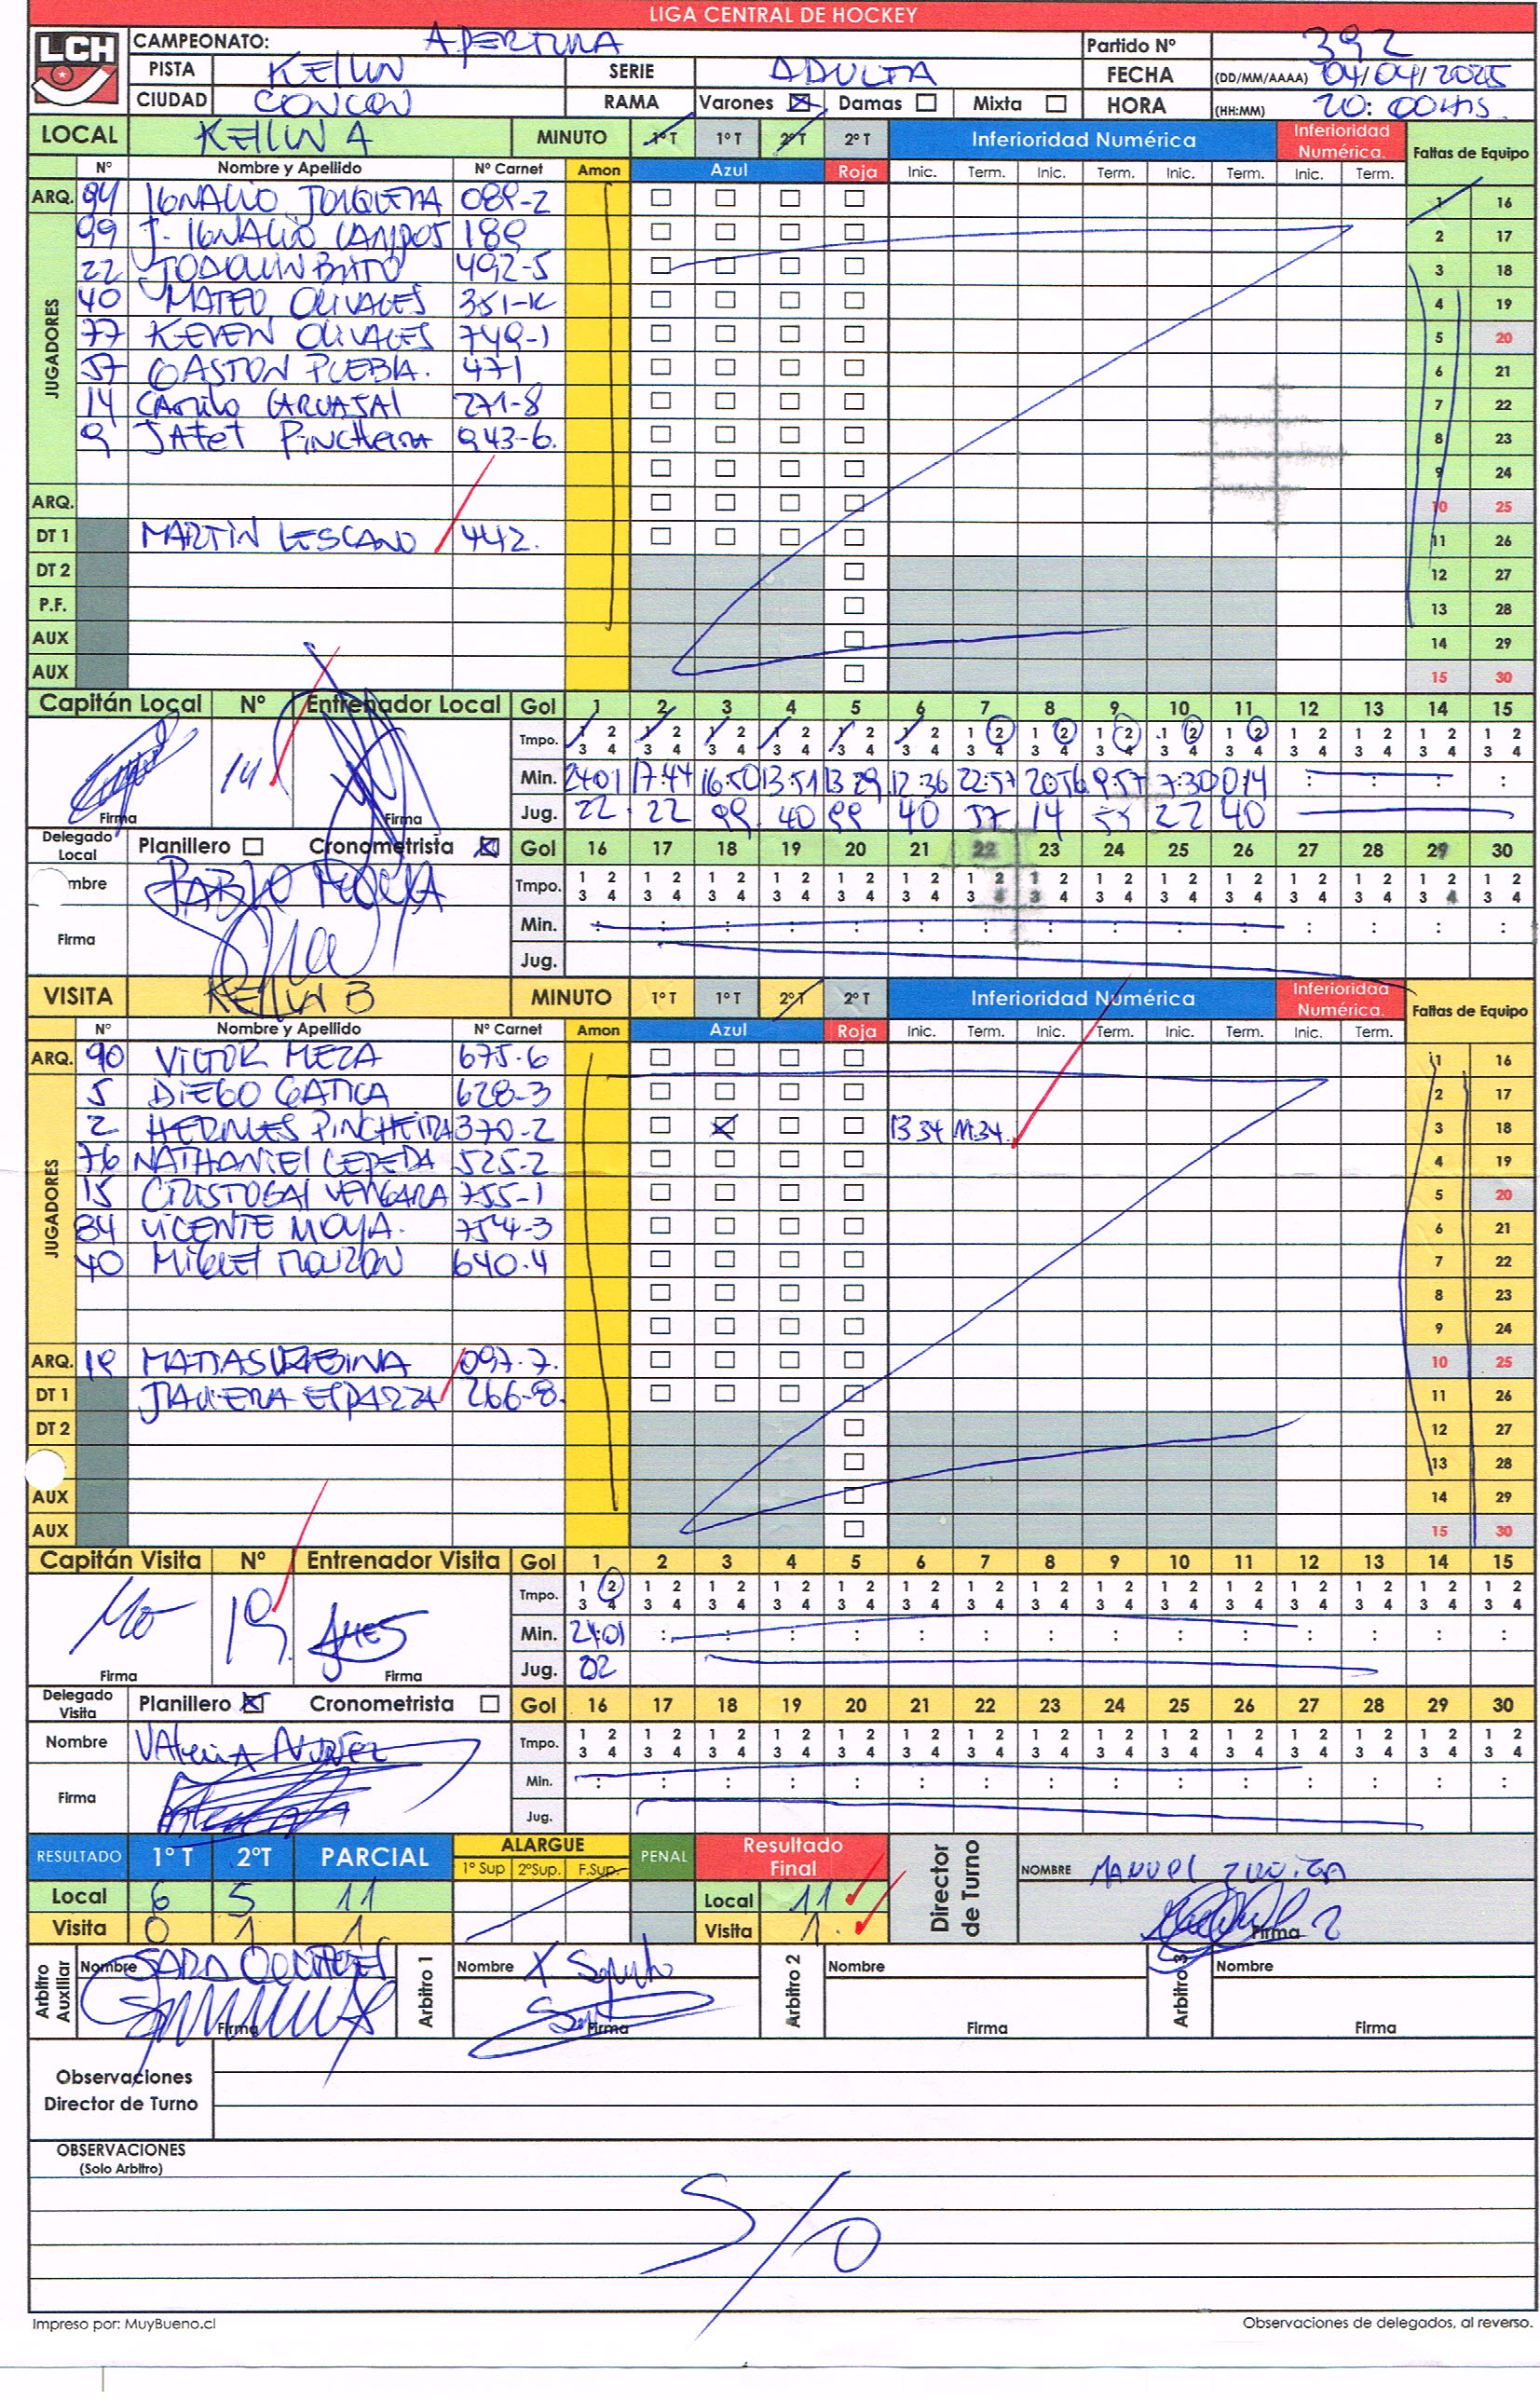 LIGA CENTRAL DE HOCKEY
LCH
CAMPEONATO: APERTURA Partido Nº 392
PISTA KELUN SERIE ADULTA FECHA (DD/MM/AAAA) 04/04/2025
CIUDAD CONCON RAMA Varones Damas Mixta HORA (HH:MM) 20:00HS.
LOCAL KELUN A MINUTO 1º T 1º T 2º T 2º T Inferioridad Numérica Inferioridad Numérica. Faltas de Equipo
Nº Nombre y Apellido Nº Carnet Amon Azul Roja Inic. Term. Inic. Term. Inic. Term. Inic. Term.
ARQ. 94 IGNACIO JORQUERA 089-2 1 16
JUGADORES
99 J. IGNACIO CAMPOS 189 2 17
22 JOAQUIN BRITO 492-5 3 18
40 MATEO OLIVARES 351-K 4 19
77 KEVEN OLIVARES 749-1 5 20
57 GASTON PUEBLA. 471 6 21
14 CAMILO CARVAJAL 271-8 7 22
9 JAFET PINCHEIRA 943-6. 8 23
9 24
ARQ. 10 25
DT 1 MARTIN LESCANO 442. 11 26
DT 2 12 27
P.F. 13 28
AUX 14 29
AUX 15 30
Capitán Local Nº Entrenador Local Gol 1 2 3 4 5 6 7 8 9 10 11 12 13 14 15
Tmpo. 1 2 1 2 1 2 1 2 1 2 1 2 1 2 1 2 1 2 1 2 1 2 1 2 1 2 1 2 1 2
3 4 3 4 3 4 3 4 3 4 3 4 3 4 3 4 3 4 3 4 3 4 3 4 3 4 3 4 3 4
14 Min. 24:01 17:44 16:50 13:51 13 29 12:36 22:57 20 56 9:57 7:30 0:14 : : : :
Firma Firma Jug. 22 22 99. 40 99 40 57 14 22 40
Delegado Local Planillero Cronometrista Gol 16 17 18 19 20 21 22 23 24 25 26 27 28 29 30
mbre PABLO Tmpo. 1 2 1 2 1 2 1 2 1 2 1 2 1 2 1 2 1 2 1 2 1 2 1 2 1 2 1 2 1 2
3 4 3 4 3 4 3 4 3 4 3 4 3 4 3 4 3 4 3 4 3 4 3 4 3 4 3 4 3 4
Firma Min. : : : : : : : : : : : : : : :
Jug.
VISITA KELUN B MINUTO 1º T 1º T 2º T 2º T Inferioridad Numérica Inferioridad Numérica. Faltas de Equipo
Nº Nombre y Apellido Nº Carnet Amon Azul Roja Inic. Term. Inic. Term. Inic. Term. Inic. Term.
ARQ. 90 VICTOR MEZA 675-6 1 16
JUGADORES
5 DIEGO GATICA 628-3 2 17
2 HERMES PINCHEIRA 370-2 13 34 11:34. 3 18
76 NATHANIEL CEPEDA 525-2 4 19
15 CRISTOBAL VERGARA 755-1 5 20
84 VICENTE MOYA. 754-3 6 21
40 MIGUEL MONZON 640.4 7 22
8 23
9 24
ARQ. 19 MATIAS URBINA 097-7. 10 25
DT 1 JAVIERA ESPARZA 266-8. 11 26
DT 2 12 27
13 28
AUX 14 29
AUX 15 30
Capitán Visita Nº Entrenador Visita Gol 1 2 3 4 5 6 7 8 9 10 11 12 13 14 15
Tmpo. 1 2 1 2 1 2 1 2 1 2 1 2 1 2 1 2 1 2 1 2 1 2 1 2 1 2 1 2 1 2
3 4 3 4 3 4 3 4 3 4 3 4 3 4 3 4 3 4 3 4 3 4 3 4 3 4 3 4 3 4
19. Min. 21:01 : : : : : : : : : : : : : :
Firma Firma Jug. 02
Delegado Visita Planillero Cronometrista Gol 16 17 18 19 20 21 22 23 24 25 26 27 28 29 30
Nombre VALERIA NUÑEZ Tmpo. 1 2 1 2 1 2 1 2 1 2 1 2 1 2 1 2 1 2 1 2 1 2 1 2 1 2 1 2 1 2
3 4 3 4 3 4 3 4 3 4 3 4 3 4 3 4 3 4 3 4 3 4 3 4 3 4 3 4 3 4
Firma Min. : : : : : : : : : : : : : : :
Jug.
RESULTADO 1º T 2ºT PARCIAL ALARGUE 1º Sup 2ºSup. F.Sup. PENAL Resultado Final Director de Turno NOMBRE MANUEL ZUÑIGA
Local 6 5 11 Local 11
Visita 0 1 1 Visita 1. Firma
Arbitro Auxiliar Nombre SARA Arbitro 1 Nombre Arbitro 2 Nombre Arbitro 3 Nombre
Firma Firma Firma Firma
Observaciones
Director de Turno
OBSERVACIONES
(Solo Arbitro)
S/O
Impreso por: MuyBueno.cl Observaciones de delegados, al reverso.